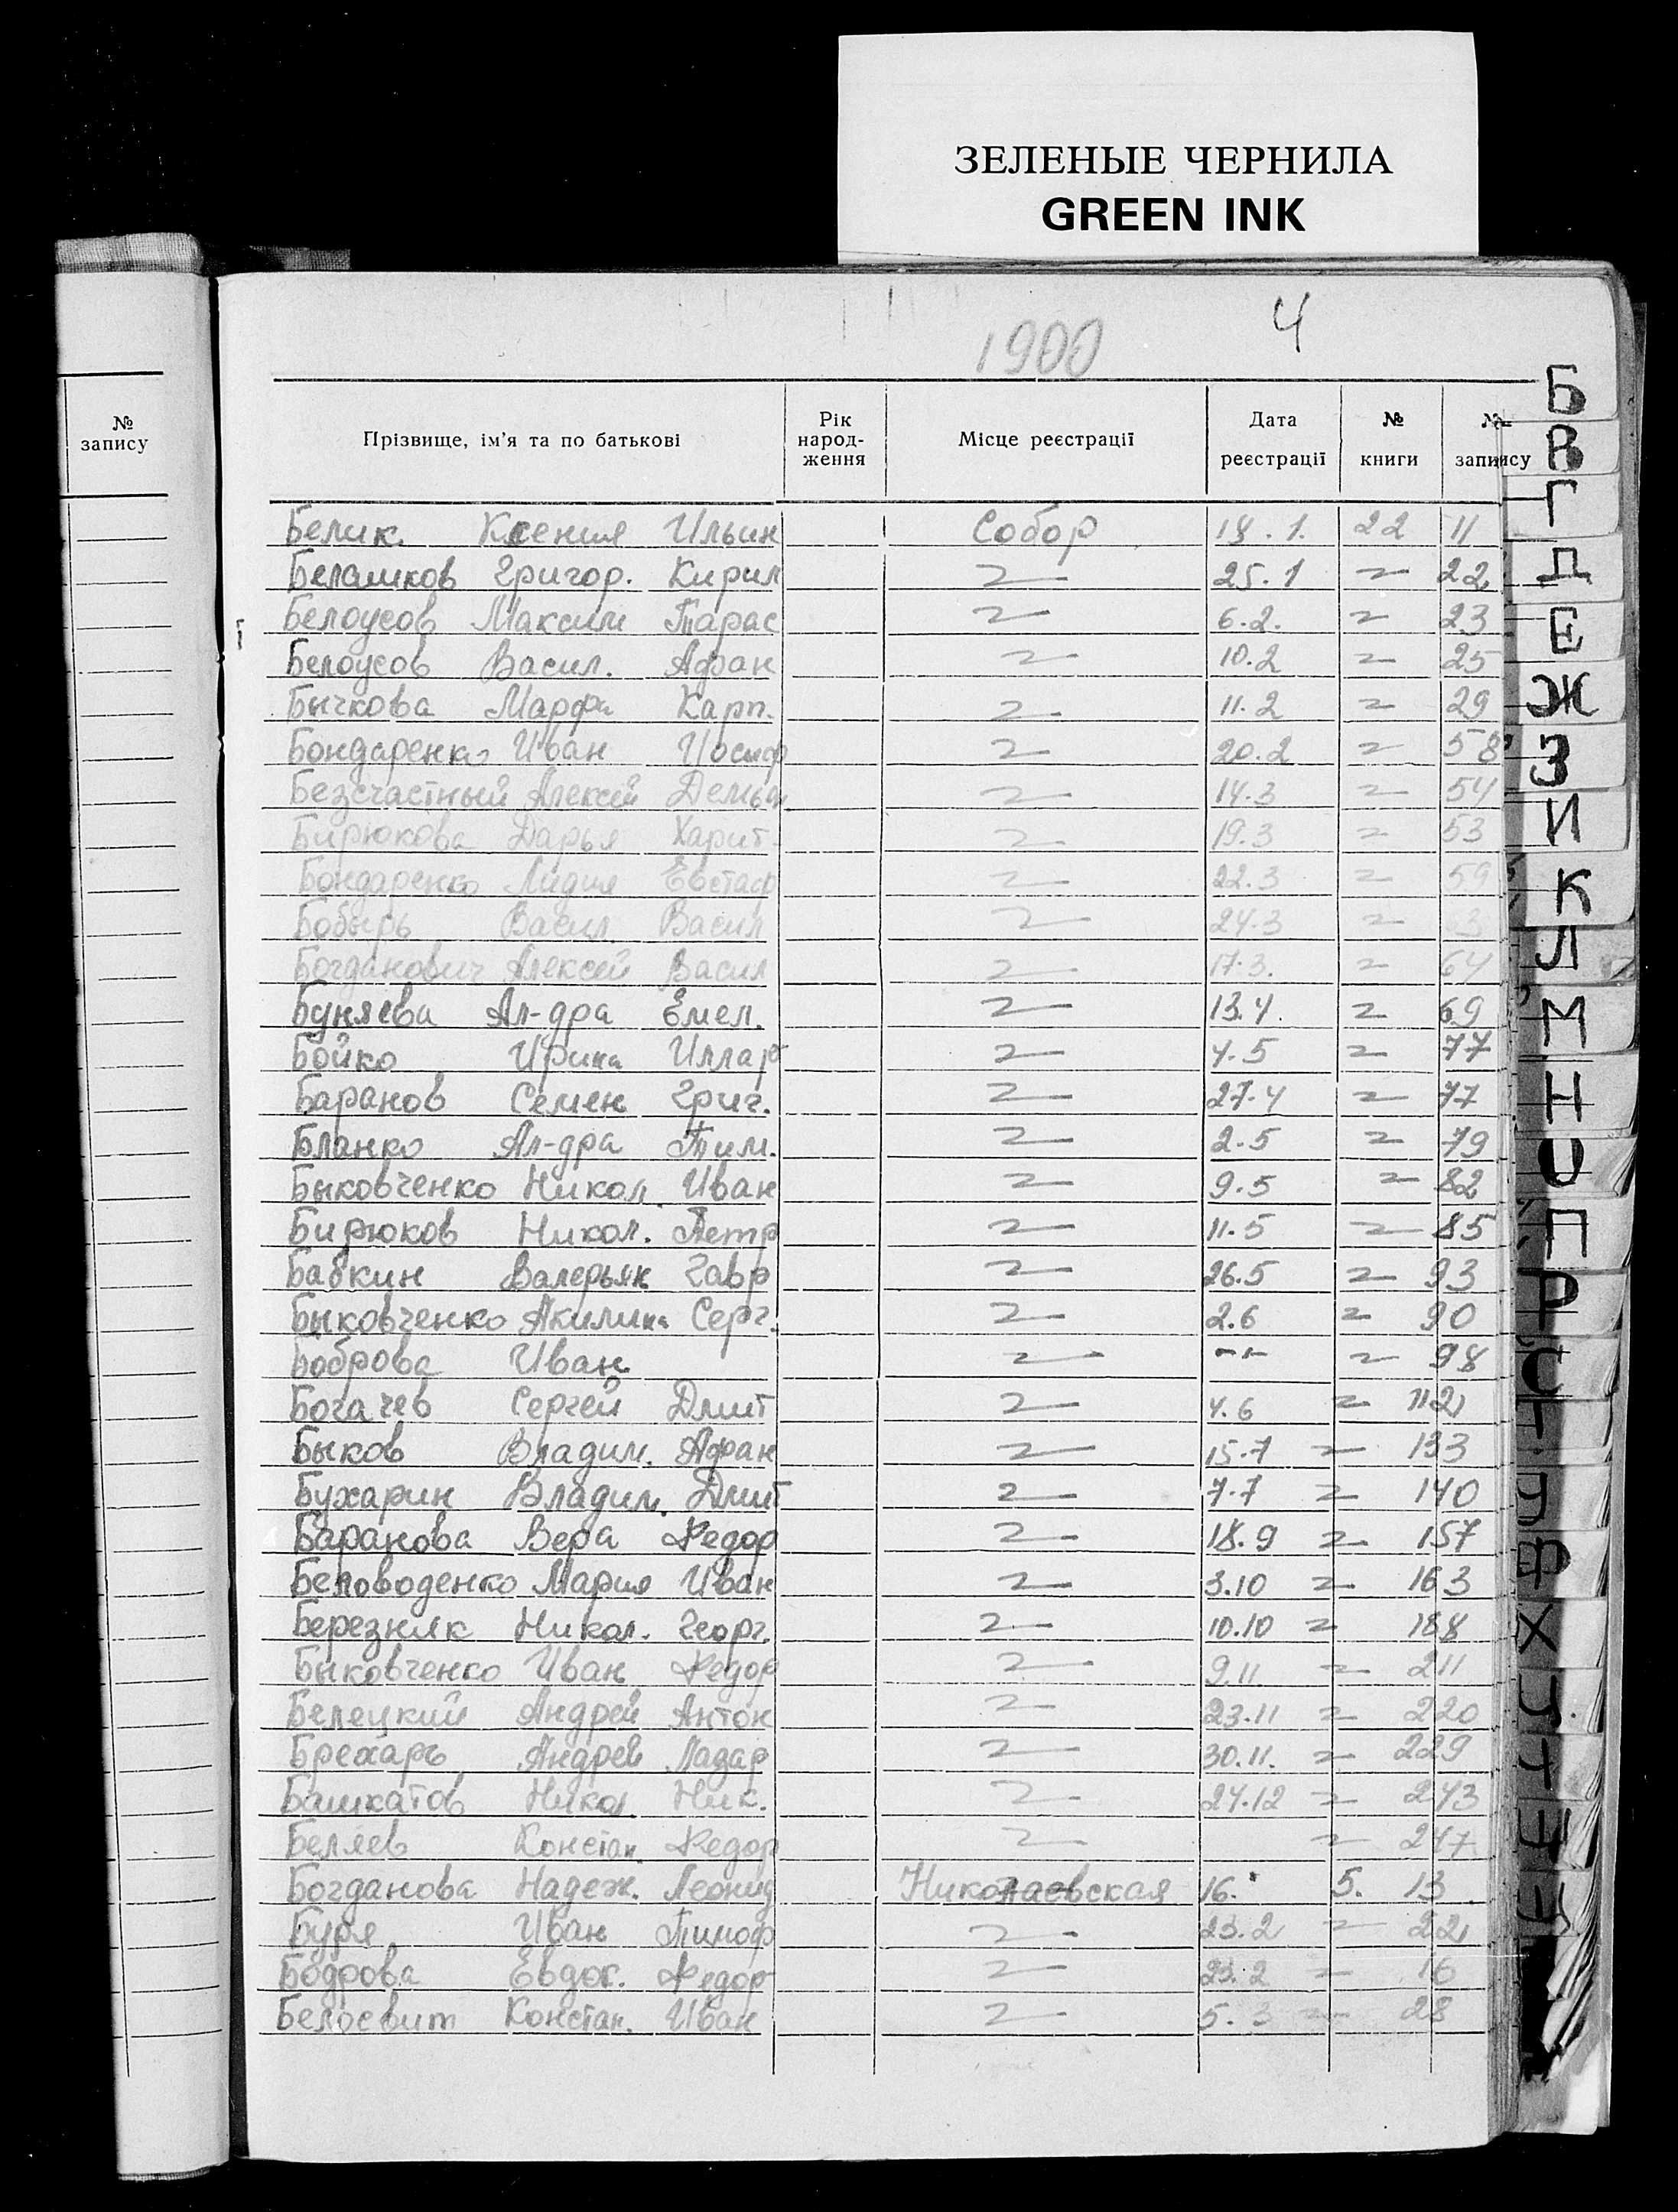 ЗЕЛЕНЫЕ ЧЕРНИЛА
GREEN INK
4
1900
№ запису
Прізвище, ім'я та по батькові Рік народ-ження Місце реєстрації Дата реєстрації № книги № запису
Белик Ксения Ильин Собор 18.1. 22 11
Белашков Григор. Кирил 〃 25.1 〃 22
Белоусов Максим Тарас 〃 6.2. 〃 23
Белоусов Васил. Афан 〃 10.2 〃 25
Бычкова Марфа Карп. 〃 11.2 〃 29
Бондаренко Иван Иосиф 〃 20.2 〃 58
Безсчастный Алексей Демьян 〃 14.3 〃 54
Бирюкова Дарья Харит. 〃 19.3 〃 53
Бондаренко Лидия Евстаф 〃 22.3 〃 59
Бобырь Васил Васил 〃 24.3 〃
Богданович Алексей Васил 〃 17.3. 〃 64
Буняева Ал-дра Емел. 〃 13.4. 〃 69
Бойко Ирина Иллар 〃 4.5 〃 77
Баранов Семен Григ. 〃 27.4 〃 77
Бланко Ал-дра Тим. 〃 2.5 〃 79
Быковченко Никол. Иван 〃 9.5 〃 82
Бирюков Никол. Петр 〃 11.5 〃 85
Бабкин Валерьян Гавр 〃 26.5 〃 93
Быковченко Акилина Серг. 〃 2.6 〃 90
Боброва Иван 〃 -- 〃 98
Богачев Сергей Дмит 〃 4.6 〃 112
Быков Владим. Афан 〃 15.7 〃 133
Бухарин Владим. Дмит 〃 7.7 〃 140
Баранова Вера Федор 〃 18.9 〃 157
Беловоденко Мария Иван 〃 3.10 〃 163
Березняк Никол. Георг. 〃 10.10 〃 188
Быковченко Иван Федор 〃 9.11. 〃 211
Белецкий Андрей Антон 〃 23.11 〃 220
Брехарь Андрев Лазар 〃 30.11. 〃 229
Башкатов Никол Ник. 〃 24.12 〃 243
Беляев Констан. Федор 〃 〃 247
Богданова Надеж. Леонид Николаевская 16. 5. 13
Буря Иван Тимоф 〃 23.2 〃 22
Бодрова Евдок. Федор 〃 23.2 〃 16
Белосвит Констан. Иван 〃 5.3 〃 28
Б
В
Г
Д
Е
Ж
З
И
К
Л
М
Н
О
П
Р
С
Т
У
Ф
Х